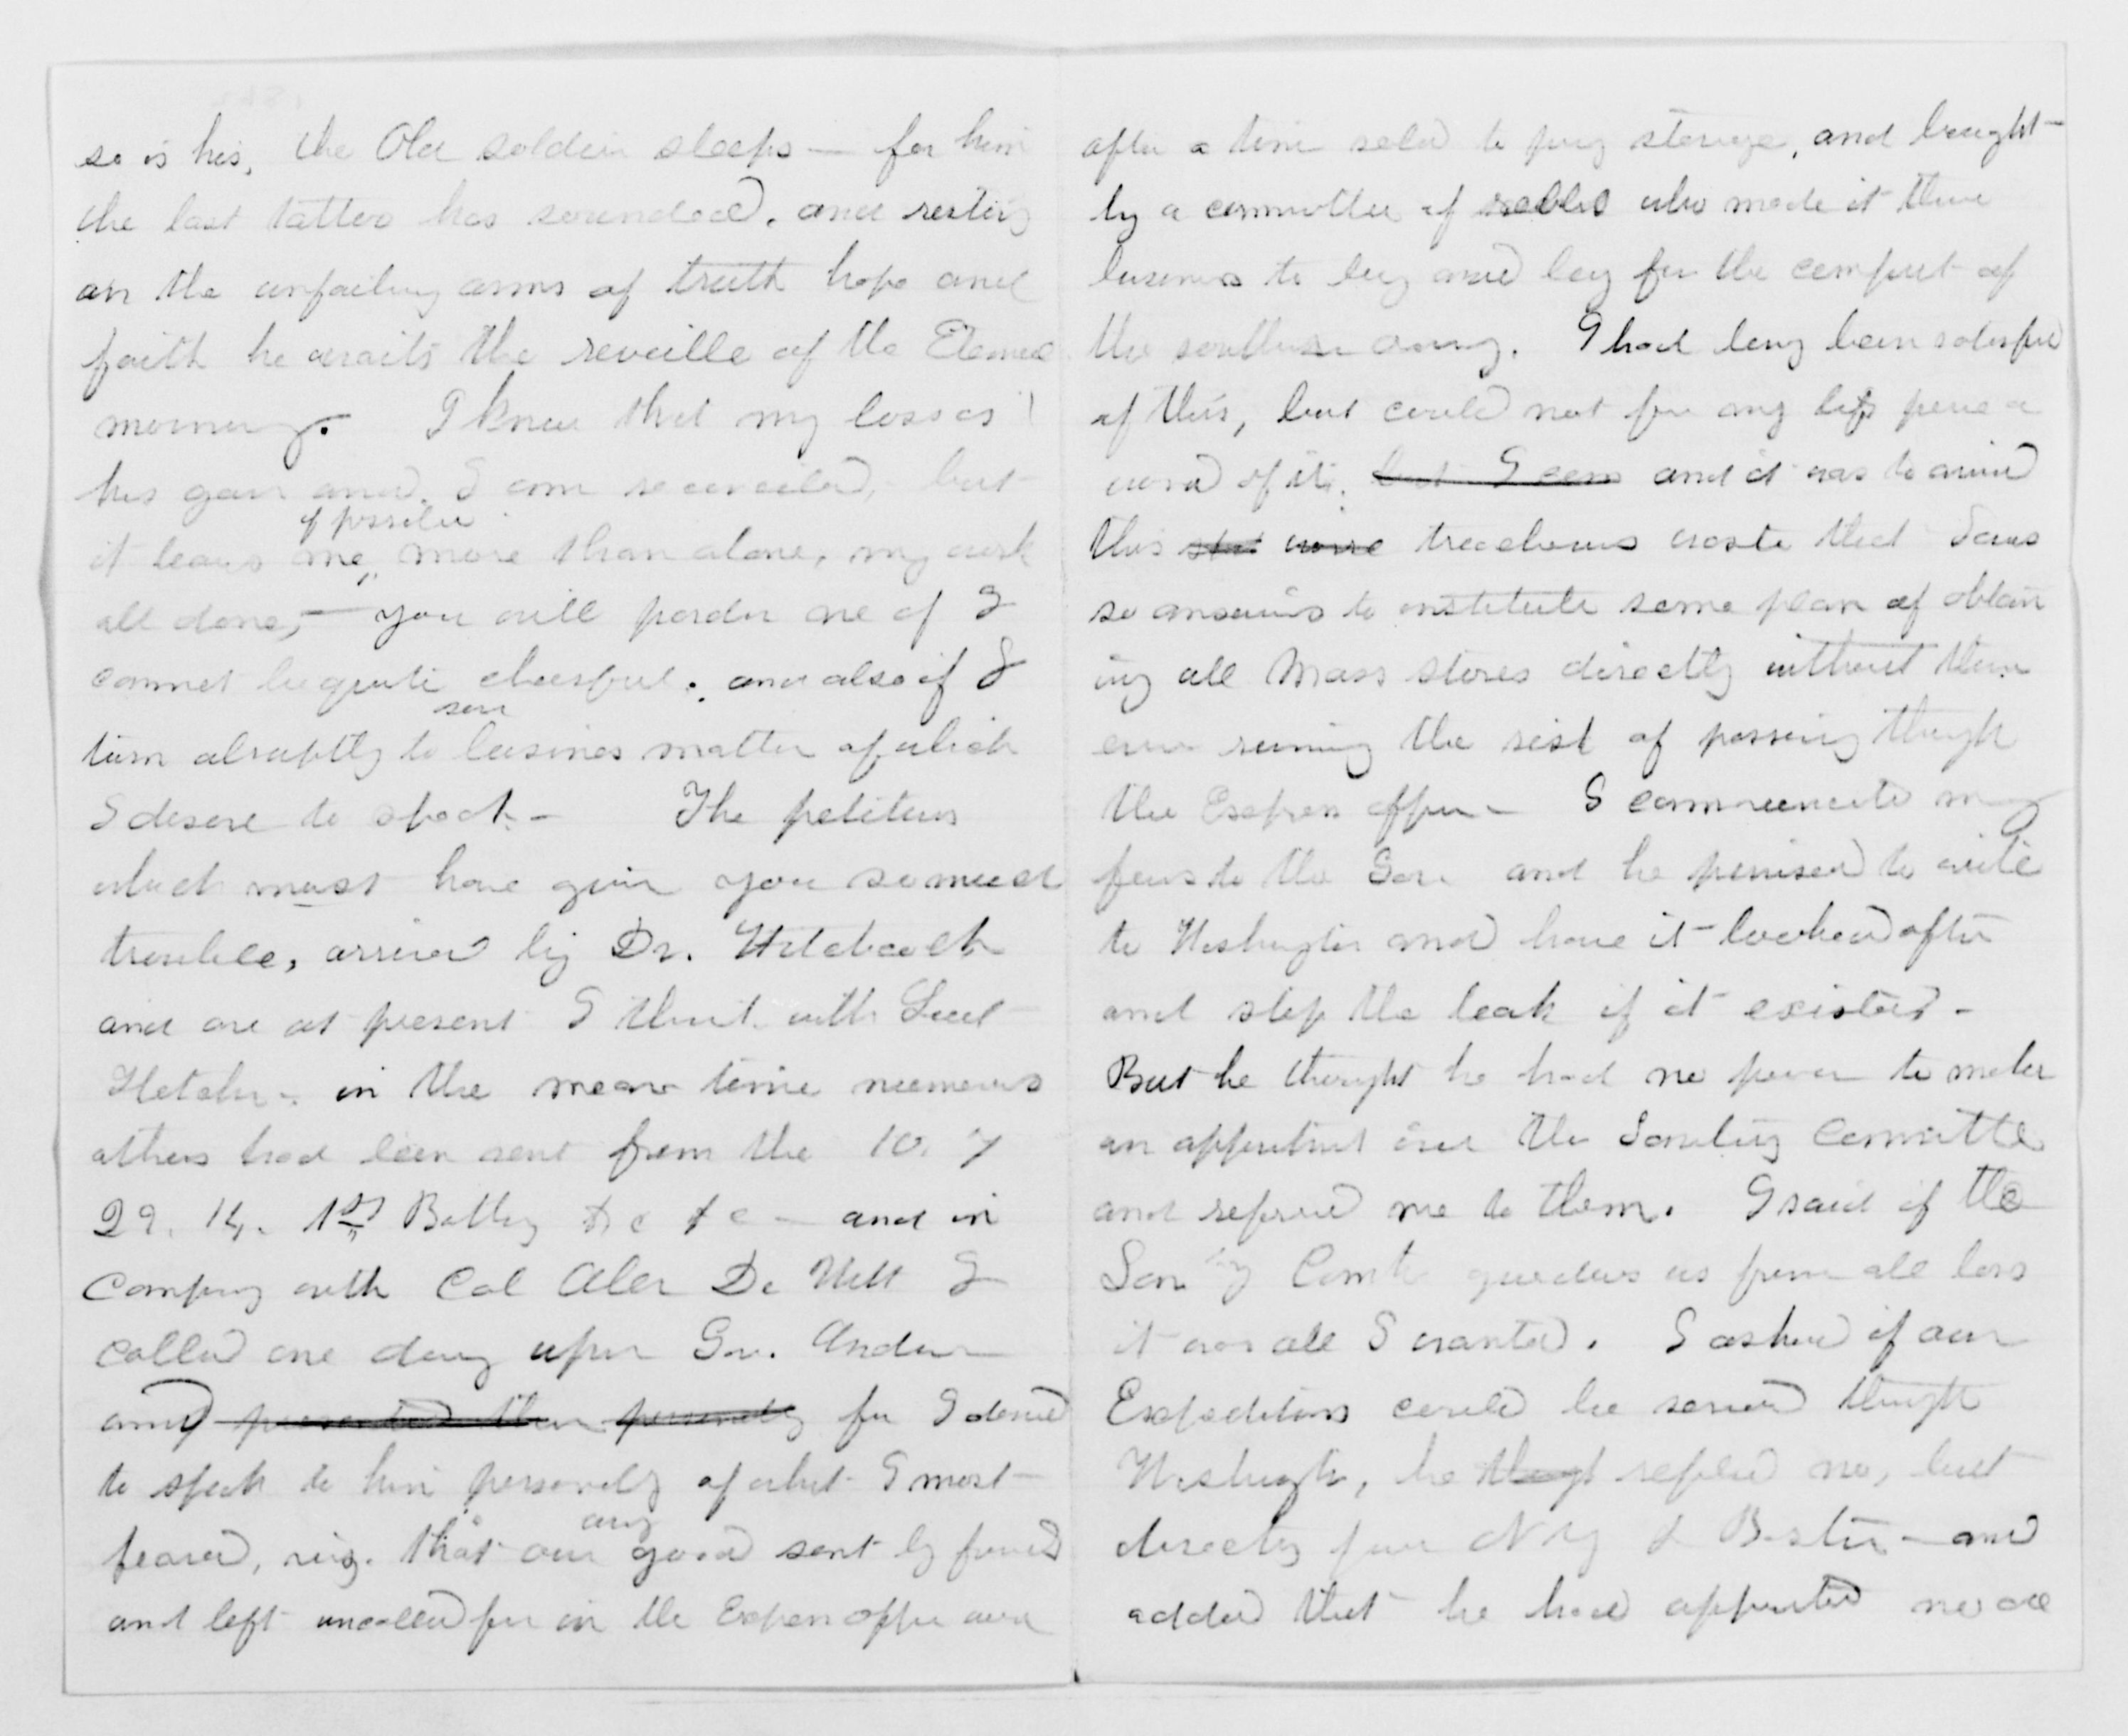 so is his, the Old soldier sleeps — for him
the last tattoo has sounded, and resting
on the unfailing arms of truth hope and
faith he awaits the reveille of the Eternal
morning. I know that my loss is
his gain and I am reconciled, but
if possible
it leaves me, more than alone, my work
all done, — you will pardon me if I
cannot be quite cheerful. and also if I
some
turn abruptly to business matter of which
I desire to speak — The petitions
which must have given you so much
trouble, arrived by Dr. Hitchcock
and are at present I think with Lieut
Fletcher — in the mean time numerous
others had been sent from the 10. 7
29. 14. 1st Battery &c &c — and in
company with Col Alex De Witt I
called one day upon Gov. Andrew
and presented them personally for I desired
to speak to him personally of what I most
any
feared, viz. that our goods sent by friends
and left uncalled for in the Express office were
after a time sold to pay storage, and bought
by a committee of rebels who made it their
business to buy and buy for the comfort of
the southern army. I had long been satisfied
of this, but could not for my life prove a
word of it. but I can and it was to avoid
this treacherous waste that I was
so anxious to institute some plan of obtain
ing all Mass stores directly without their
ever running the risk of passing through
the Express office — I communicated my
fears to the Gov. and he promised to write
to Washington and have it looked after
and stop the leak if it existed —
But he thought he had no power to make
an appointment over the Sanitary Committee
and referred me to them. I said if the
Sanity Comte guarded us from all loss
it was all I wanted. I asked if our
Expeditions could be served through
Washington, he thought replied no, but
directly from N Y & Boston — and
added that he had appointed